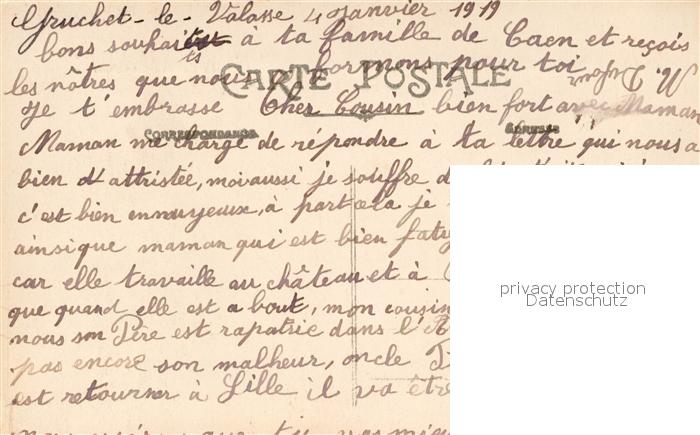 Gruchet-le-Valasse 4 Janvier 1919
bons souhaits à ta famille de Caen et reçois
les nôtres que nous formons pour toi
CARTE POSTALE
M. Dufour
Je t'embrasse Cher Cousin bien fort avec Maman
CORRESPONDANCE ADRESSE
Maman me charge de répondre à ta lettre qui nous a
bien d'attristée, moi aussi je souffre
c'est bien ennuyeuse, à part cela je
ainsi que maman qui est bien
car elle travaille au château et à
que quand elle est a bout, mon cousin
nous son Père est rapatrié dans l'
pas encore son malheur, oncle
est retourner à Lille il va être
que tu
privacy protection
Datenschutz